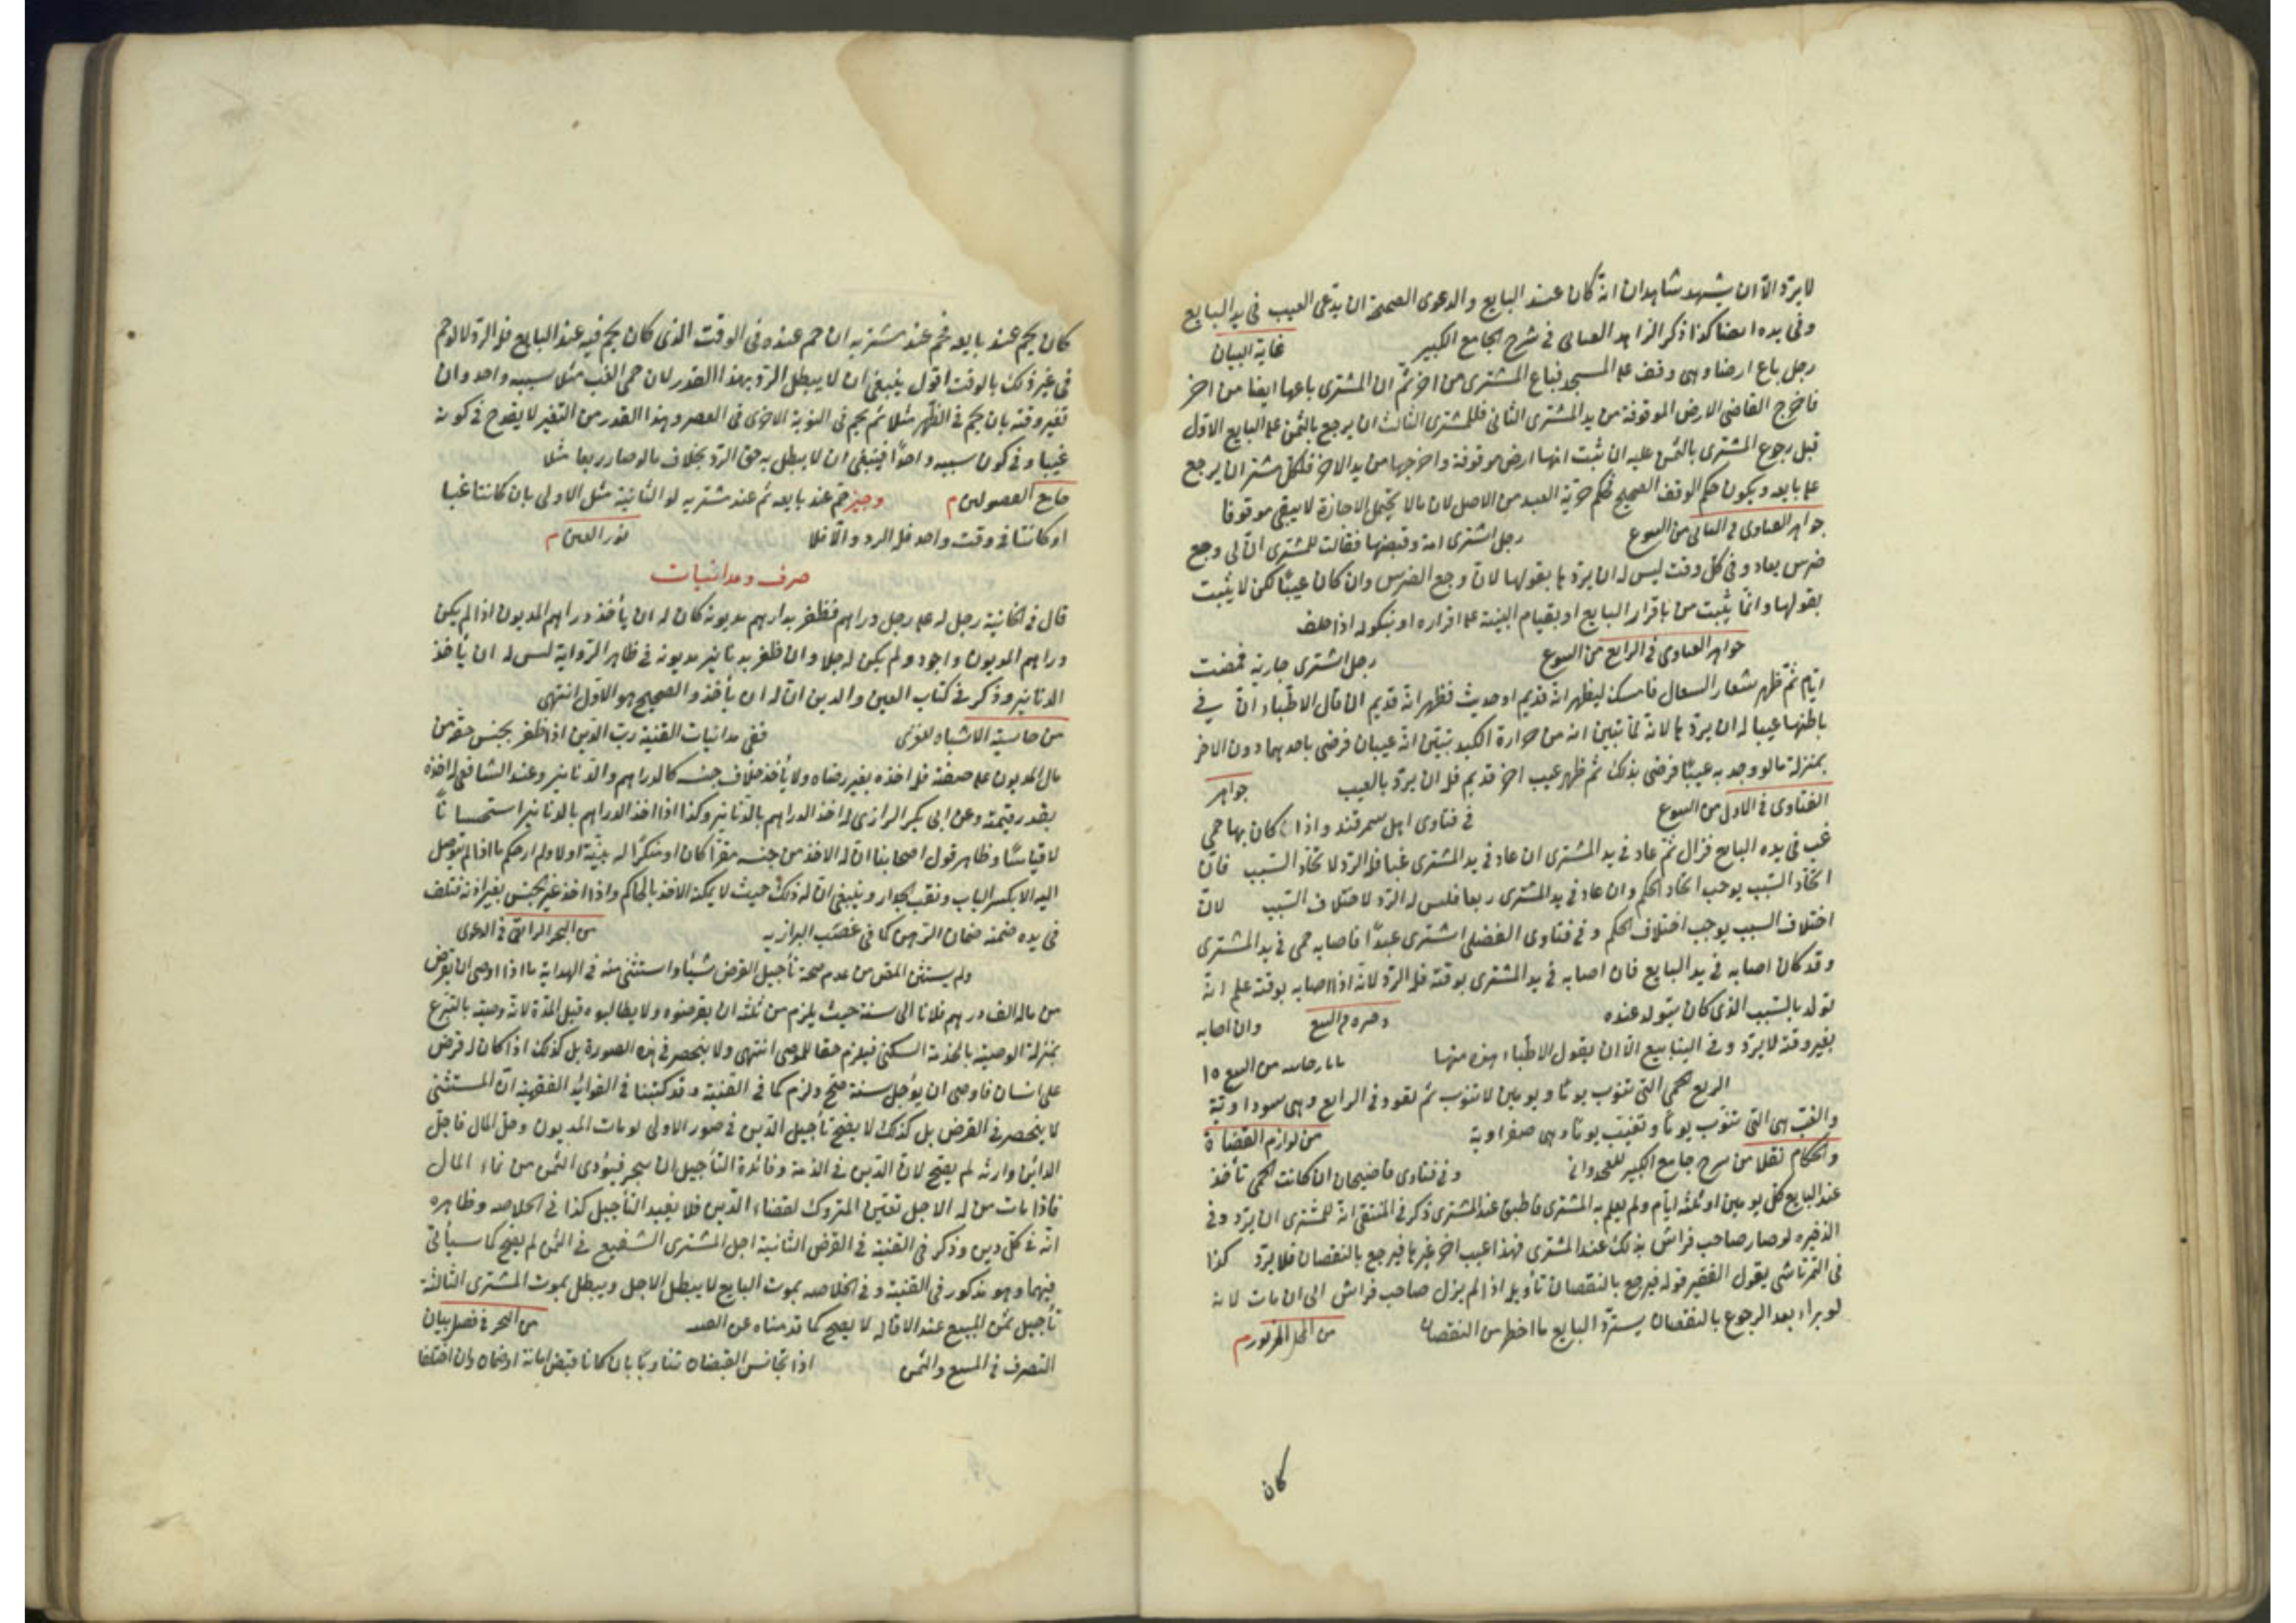 لا يرد الا ان يشهد شاهدان انه كان عند البايع والدعوى الصحيحة ان يدعى العيب في يد البايع
وفي يده ايضا كذا ذكر الزاهد العتابى في شرح الجامع الكبير غاية البيان
رجل باع ارضا وهى وقف على المسجد فباع المشترى من اخر ثم ان المشترى باعها ايضا من اخر
فاخرج القاضى الارض الموقوفة من يد المشترى الثانى فللمشترى الثالث ان يرجع بالثمن على البايع الاول
قبل رجوع المشترى بالثمن عليه ان ثبت انها ارض موقوفة واخرجها من يد الاخر فلكل مشتر ان يرجع
على بايعه ويكون حكم الوقف الصحيح كحكم حرية العبد من الاصل لان ما لا يحتمل الاجازة لا يبقى موقوفا
جواهر الفتاوى في الثانى من البيوع رجل اشترى امة وقبضها فقالت للمشترى ان لى وجع
ضرس يعاد في كل وقت ليس له ان يردها بقولها لان وجع الضرس وان كان عيبا لكن لا يثبت
بقولها وانما يثبت من باقرار البايع او بقيام البينة على اقراره او نكوله اذا حلف
جواهر الفتاوى في الرابع من البيوع رجل اشترى جارية فمضت
ايام ثم ظهر شعار السعال فامسك ليظهر انه قديم او حديث فظهر انه قديم ان قال الاطباء ان في
باطنها عيبا له ان يردها لانه لما تبين انه من حرارة الكبد تبين انه عيبان فرضى باحدهما دون الاخر
بمنزلة ما لو وجد به عيبا فرضى بذلك ثم ظهر عيب اخر قديم فله ان يرد بالعيب جواهر
الفتاوى في الاول من البيوع في فتاوى اهل سمرقند واذا كان بها حمى
غب في يده البايع فزال ثم عاد في يد المشترى ان عاد في يد المشترى غبا فله الرد لاتحاد السبب فان
اتحاد السبب يوجب اتحاد الحكم وان عاد في يد المشترى ربعا فليس له الرد لاختلاف السبب لان
اختلاف السبب يوجب اختلاف الحكم وفي فتاوى الفضلى اشترى عبدا فاصابه حمى في يد المشترى
وقد كان اصابه في يد البايع فان اصابه في يد المشترى بوقته فله الرد لانه اذا اصابه بوقته علم انه
تولد بالسبب الذى كان يتولد عنده البيع وان اصابه
بغير وقته لا يرد وفي الينابيع الا ان يقول الاطباء هذه منها من البيع ١٥
الربع الحمى التى تنوب يوما ويومين لا تنوب ثم تعود في الرابع وهى سوداوية
والغب هى التى تنوب يوما وتغيب يوما وهى صفراوية من لوازم القضاة
والحكام نقلا من شرح جامع الكبير وفي فتاوى قاضيخان ان كانت الحمى تأخذ
عند البايع كل يومين او ثلثة ايام ولم يعلم به المشترى فاطبق عند المشترى ذكر في المنتقى انه للمشترى ان يرد وفي
الذخيره لو صار صاحب فراش بذلك عند المشترى فهذا عيب اخر غيرها فيرجع بالنقصان فلا يرد كذا
في التمرتاشى يقول الفقير قوله فيرجع بالنقصان تأويل اذا لم يزل صاحب فراش الى ان مات لانه
لو براء بعد الرجوع بالنقصان يسترد البايع ما اخط من النقصان من المحل المزبور م
كان
كان يحم عند بايعه فحم عند مشتريه ان حم عنده في الوقت الذى كان يحم فيه عند البايع فله الرد لا لو حم
في غير ذلك بالوقت اقول ينبغى ان لا يبطل الرد بهذا القدر لان حمى الغب مثلا سببه واحد وان
تغير وقته بان يحم في الظهر مثلا ثم يحم في النوبة الاخرى في العصر وهذا القدر من التغير لا يقدح في كونه
غيبا وفي كون سببه واحدا فينبغى ان لا يبطل به حق الرد بخلاف ما لو صار ربعا مثلا
جامع الفصولين م وجيز حم عند بايعه ثم عند مشتريه لو الثانية مثل الاولى بان كانتا غبا
او كانتا في وقت واحد فله الرد والا فلا نور العين م
صرف ومداينات
قال في الخانية رجل له على رجل دراهم فظفر بدراهم مديونه كان له ان يأخذ دراهم المديون اذا لم يكن
دراهم المديون واجود ولم يكن مؤجلا وان ظفر بدنانير مديونه في ظاهر الرواية ليس له ان يأخذ
الدنانير وذكر في كتاب العين والدين ان له ان يأخذ والصحيح هو الاول انتهى
من حاشية الاشباه للغزى ففى مداينات القنية رب الدين اذا ظفر بجنس حقه من
مال المديون على صفته فله اخذه بغير رضاه ولا يأخذ خلاف جنسه كالدراهم والدنانير وعند الشافعى له اخذه
بقدر قيمته وعن ابى بكر الرازى له اخذ الدراهم بالدنانير وكذا اذا اخذ الدراهم بالدنانير استحسانا
لا قياسا وظاهر قول اصحابنا ان له الاخذ من جنسه مقرا كان او منكرا له بينة اولا ولم ار حكم ما اذا لم يتوصل
اليه الا بكسر الباب ونقب الجدار وينبغى ان له ذلك حيث لا يمكنه الاخذ بالحاكم واذا اخذ غير الجنس بغير اذنه فتلف
في يده ضمنه ضمان الرهن كما في غصب البزازيه من البحر الرائق في الدعوى
ولم يستثن المص من عدم صحة تأجيل القرض شيئا واستثنى منه في الهداية ما اذا اوصى ان يقرض
من ماله الف درهم فلانا الى سنة حيث يلزم من ثلثه ان يقرضوه ولا يطالبوه قبل المدة لانه وصية بالتبرع
بمنزلة الوصية بالخدمة السكنى فيلزم حقا للموصى انتهى ولا ينحصر في هذه الصورة بل كذلك اذا كان له قرض
على انسان فاوصى ان يؤجل سنة صح ولزم كما في القنية وقد كتبنا في الفوائد الفقهية ان المستثنى
لا ينحصر في القرض بل كذلك لا يصح تأجيل الدين في صور الاولى لو مات المديون وحل المال فاجل
الدائن وارثه لم يصح لان الدين في الذمة وفائدة التأجيل ان يتجر فيؤدى الثمن من نماء المال
فاذا مات من له الاجل تعين المتروك لقضاء الدين فلا يفيد التأجيل كذا في الخلاصه وظاهره
انه في كل دين وذكر في القنية في القرض الثانية اجل المشترى الشفيع في الثمن لم يصح كما سيأتى
فيهما وهو مذكور في القنية وفي الخلاصه بموت البايع لا يبطل الاجل ويبطل بموت المشترى الثالثة
تأجيل ثمن المبيع عند الاقاله لا يصح كما قدمناه عن القنيه من البحر في فصل بيان
التصرف في المبيع والثمن اذا تجانس القبضان تناوبا بان كانا قبض امانة او ضمان وان اختلفا